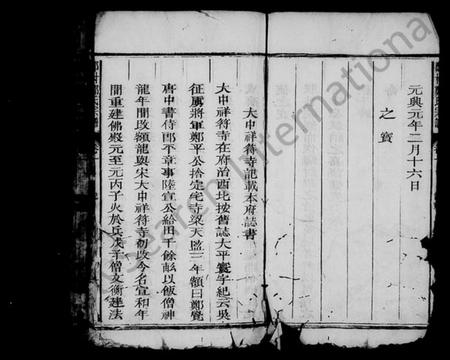 元興元年二月十六日
之寶
大中祥符寺記載本府誌書
大中祥符寺在府治西北按舊誌大平寰宇紀云吳
征虜將軍鄭平公捨定宅寺梁天監二年額曰鄭覺
唐中書侍郎平章事陸宣公給田千餘畝以飯僧神
龍年間改額龍興宋大中祥符寺初改今名宣和年
間重建佛殿元至元丙子火於兵戊子僧友衡建法